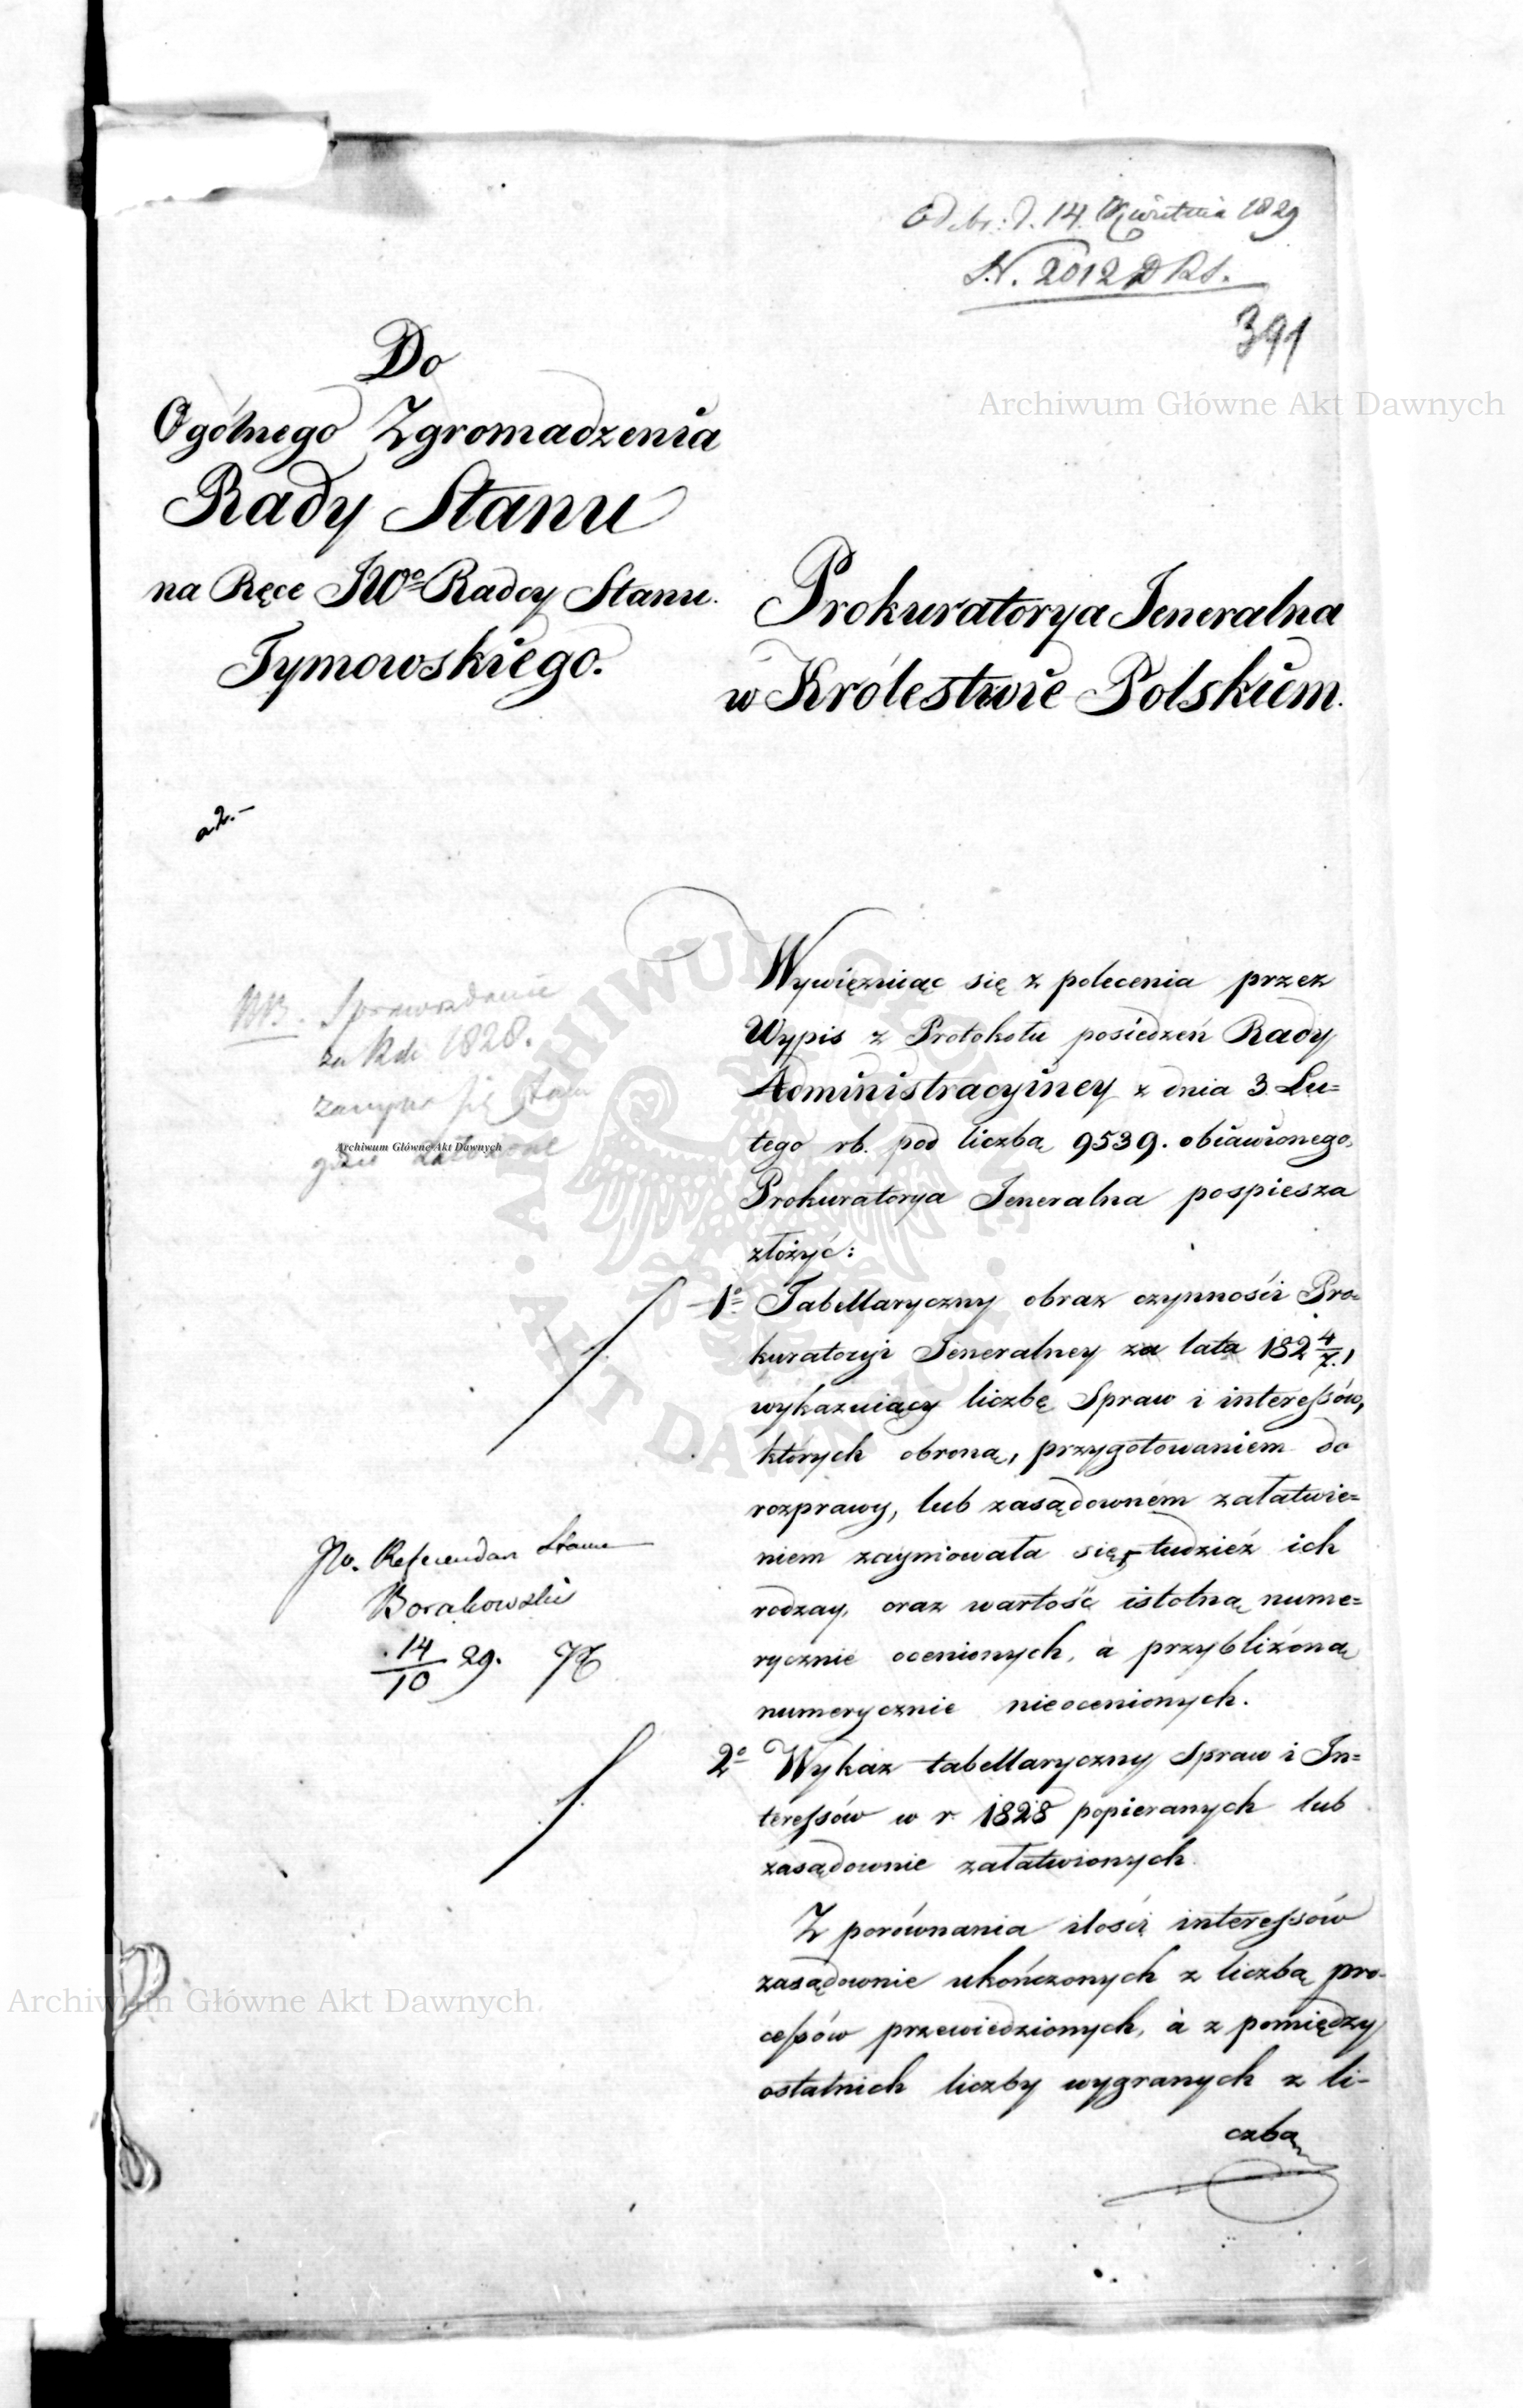 Odebr: d. 14. Kwietnia 1829
N. 2012 D R S.
391
Archiwum Główne Akt Dawnych
Do
Ogólnego Zgromadzenia
Rady Stanu
na Ręce JWo Radcy Stanu.
Tymowskiego.
Prokuratorya Jeneralna
w Królestwie Polskiem.
a 2.-
NB. Sprawozdanie
za Rok 1828.
się
gdzie
Archiwum Główne Akt Dawnych
ARCHIWUM GŁÓWNE AKT DAWNYCH
Wywięzuiąc się z polecenia przez
Wypis z Protokołu posiedzeń Rady
Administracyiney z dnia 3. Lu=
tego rb. pod liczbą 9539. obiawionego,
Prokuratorya Jeneralna pospiesza
złożyć:
1o Tabellaryczny obraz czynności Pro=
kuratoryi Jeneralney za lata 182 4/7.,
wykazuiący liczbę Spraw i interessów,
których obroną, przygotowaniem do
rozprawy, lub zasądownem załatwie=
niem zaymowała się, tudzież ich
rodzay, oraz wartość istotną nume=
rycznie ocenionych, à przybliżoną
numerycznie nieocenionych.
JW. Referendarz Stanu
Borakowski
14/10 29.
2o Wykaz tabellaryczny Spraw i In=
teressów w r. 1828 popieranych lub
zasądownie załatwionych.
Z porównania ilości interessów
zasądownie ukończonych z liczbą pro-
cessów przewiedzionych, à z pomiędzy
ostatnich liczby wygranych z li-
czbą
Archiwum Główne Akt Dawnych